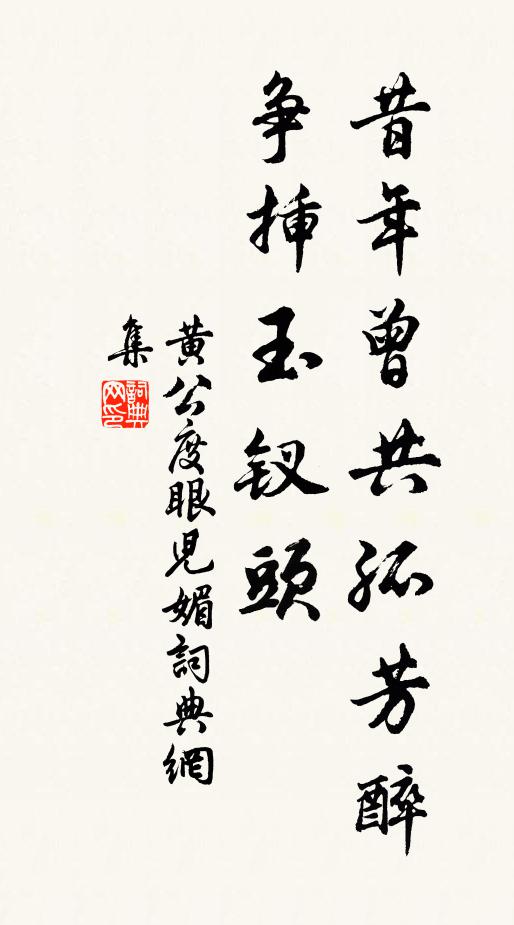 昔年曾共孤芳醉
争挿玉钗頭
黄公度眼児媚詞典網
集
詞典网印